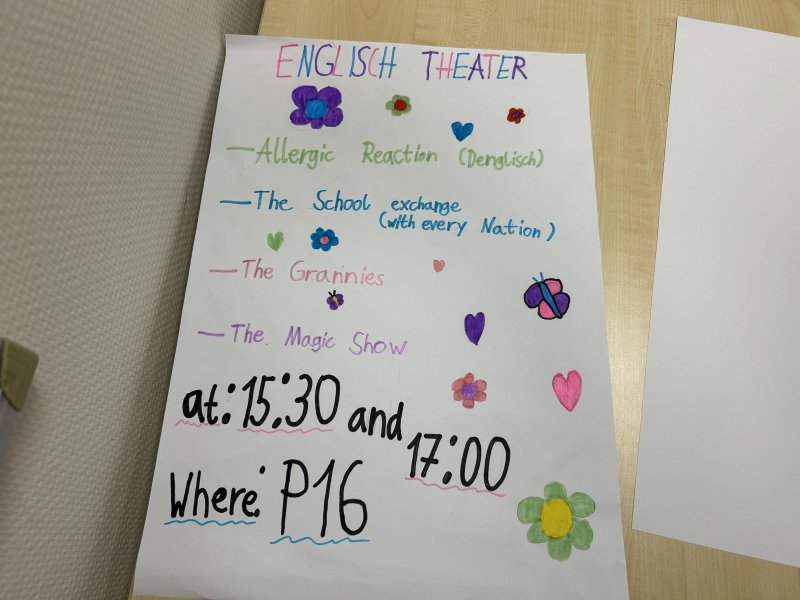 ENGLISCH THEATER
— Allergic Reaction (Denglisch)
— The School exchange
(with every Nation)
— The Grannies
— The Magic Show
at: 15:30 and
17:00
Where: P16